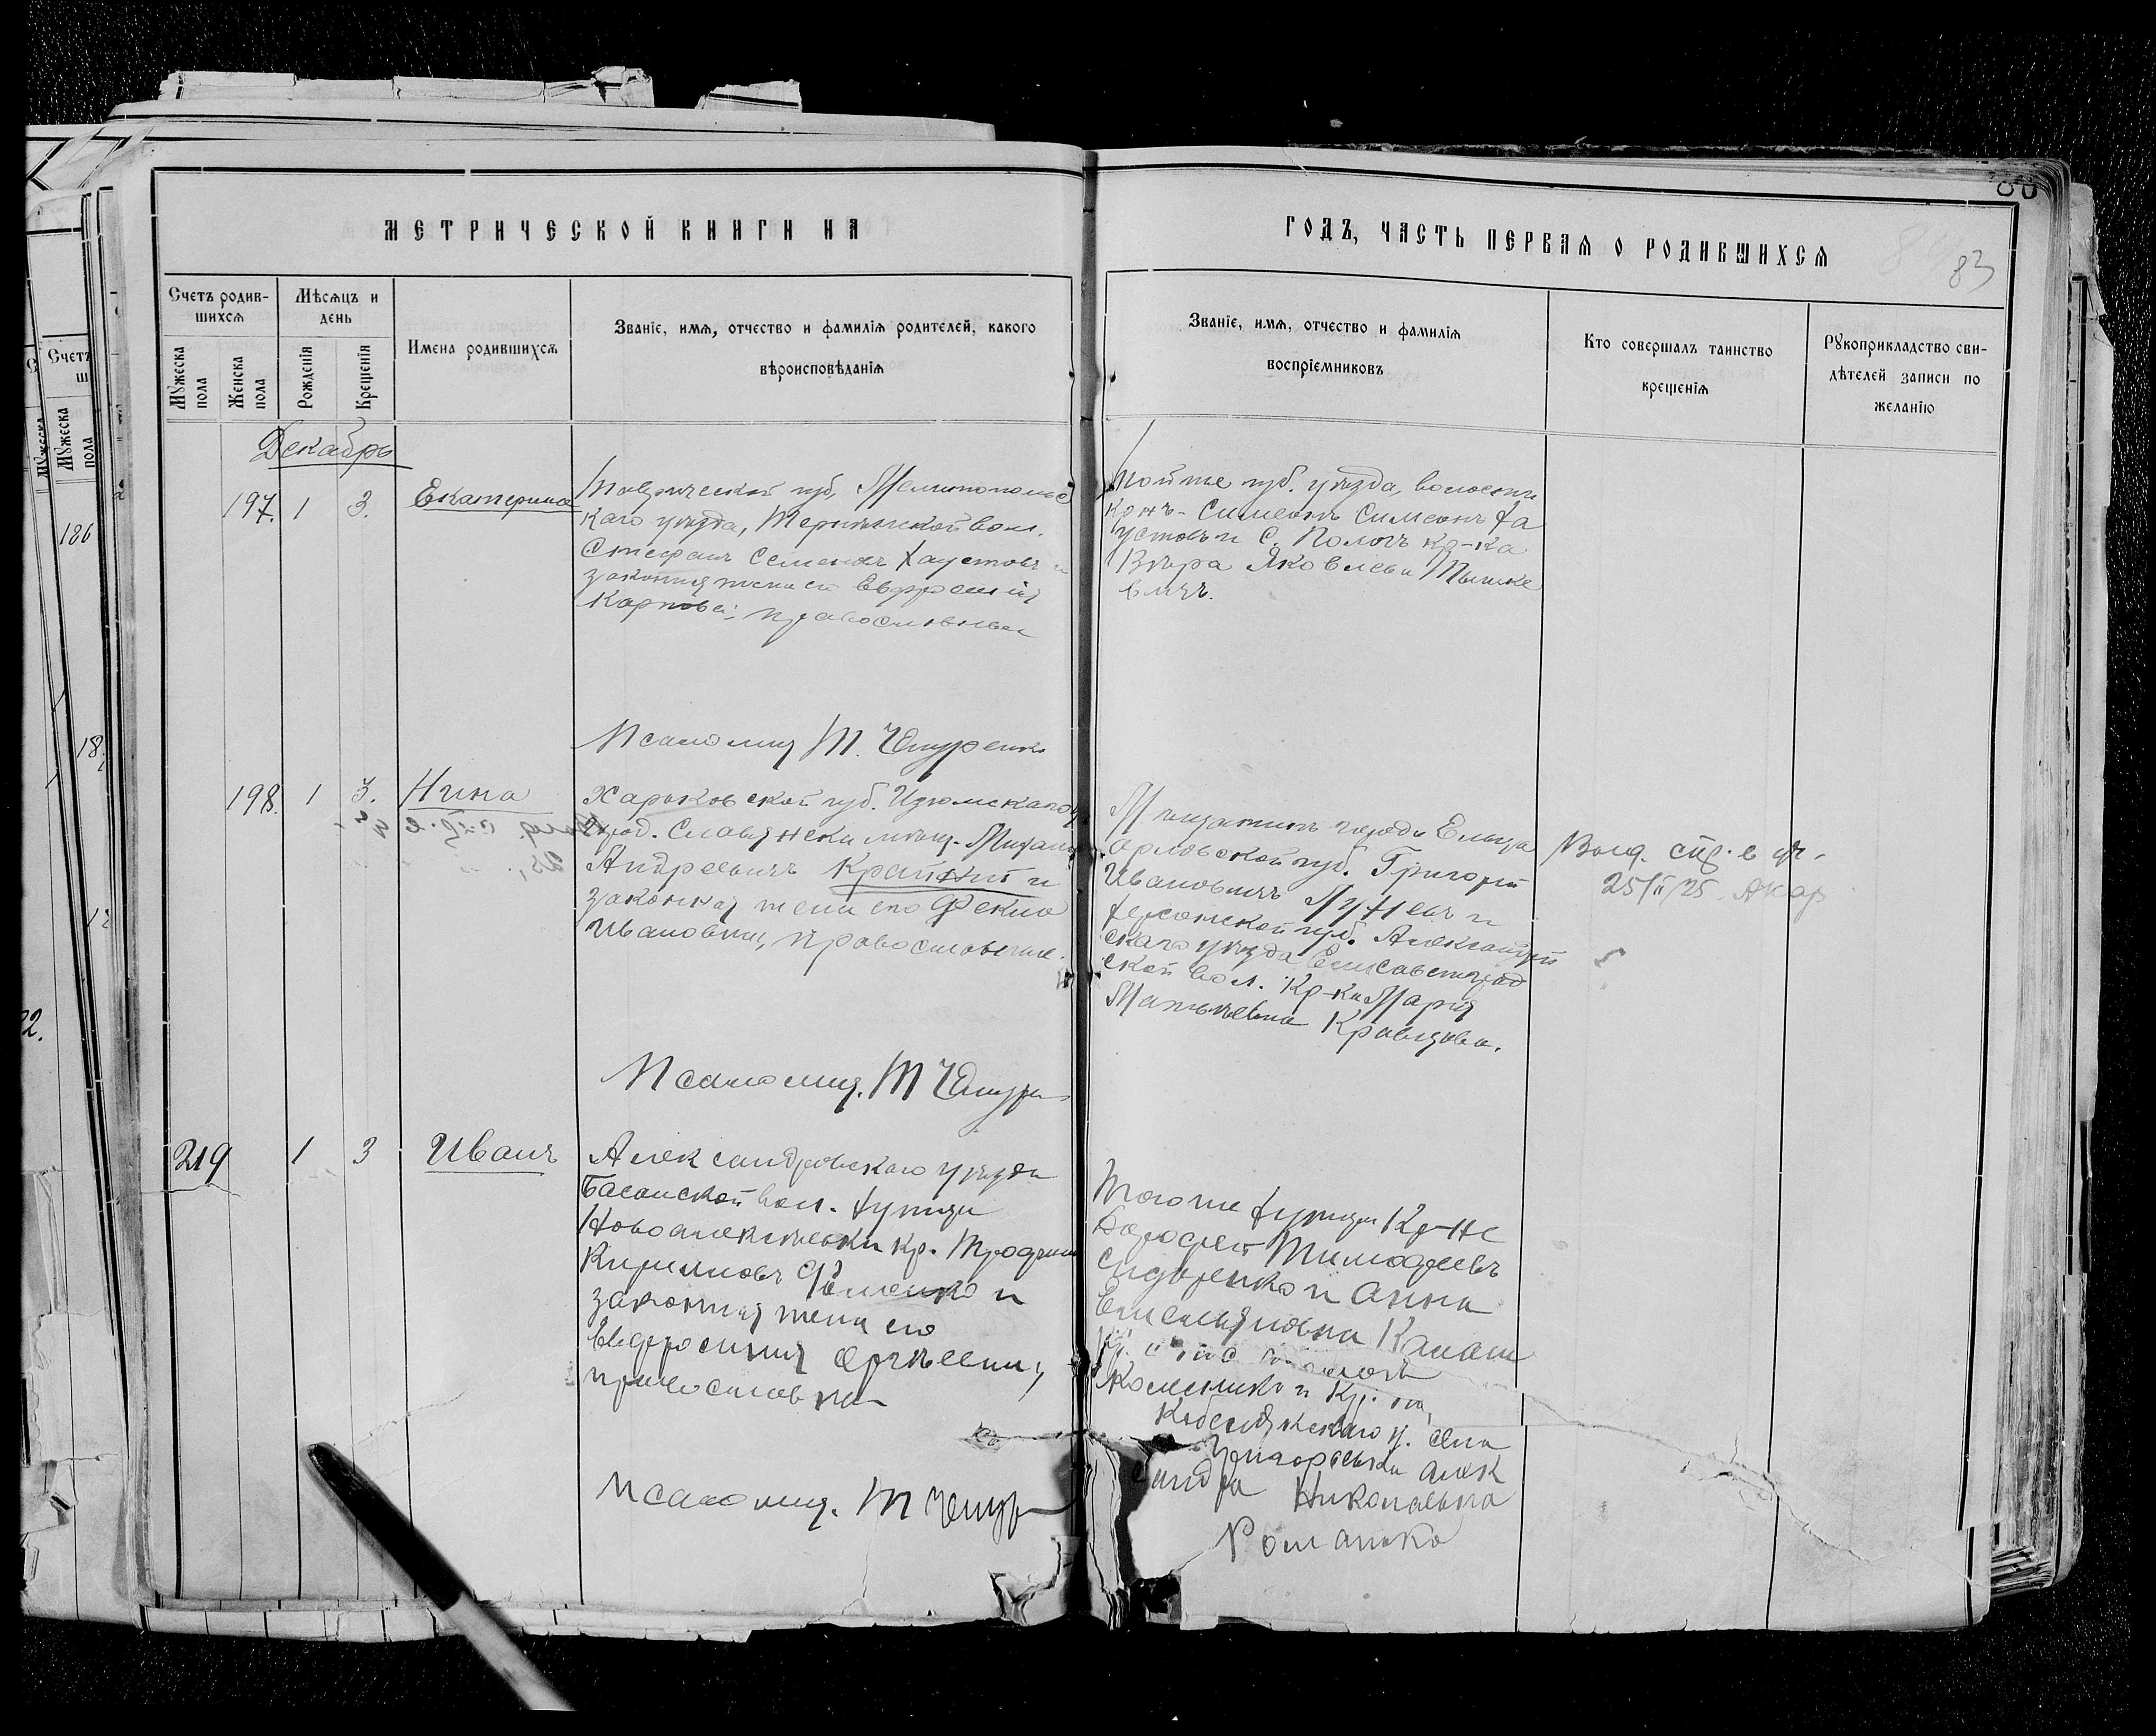 МЕТРИЧЕСКОЙ КНИГИ НА
ГОДЪ, ЧАСТЬ ПЕРВАЯ О РОДИВШИХСЯ
83
Счетъ родив-
шихся
Мѣсяцъ и
день
Мужеска
пола
Женска
пола
Рожденія
Крещенія
Имена родившихся
Званіе, имя, отчество и фамилія родителей, какого
вѣроисповѣданія
Званіе, имя, отчество и фамилія
воспріемниковъ
Кто совершалъ таинство
крещенія
Рукоприкладство сви-
дѣтелей записи по
желанію
Декабрь
197. 1 3. Екатерина
Таврической губ, Мелитопольс
каго уѣзда, вол.
Стефанъ Семеновъ Хаустовъ и
законная жена его Евфросинія
Карпова; православные
Той же губ. уѣзда, волости
кр-нъ Симеонъ Симеоновъ Ха
устовъ и С. Пологъ кр-ка
Вѣра Яковлева Тышке
вичъ.
Псаломщ Т. Чепуренко
198. 1 3. Нина
Харьковской губ. Изюмскаго у
город. Славянска мѣщ. Михаилъ
Андреевичъ Крайній и
законная жена его Фекла
Ивановна, православные.
Мѣщанинъ города Ельца
Орловской губ. Григорій
Ивановичъ Луневъ и
Херсонской губ. Александрій
скаго уѣзда Елисаветград
ской вол. кр-ка Марія
Матвѣевна Кравцова.
Выд. 
25/II/25.
Псаломщ. Т Чепур
219 1 3 Иванъ
Александровскаго уѣзда
Басанской вол. хутора
Новоалексѣевки кр. Трофимъ
Кирилловъ Фоменко и
законная жена его
Евфросинія
православные
Того же хутора Кр-не
Дорофей Тимофеевъ
Сидоренко и Анна
Емельяновна
и Кр.
Кобелякскаго у. села
Григорьевки Алек
сандра Николаевна
Романко
Псаломщ. Т Чепур
186